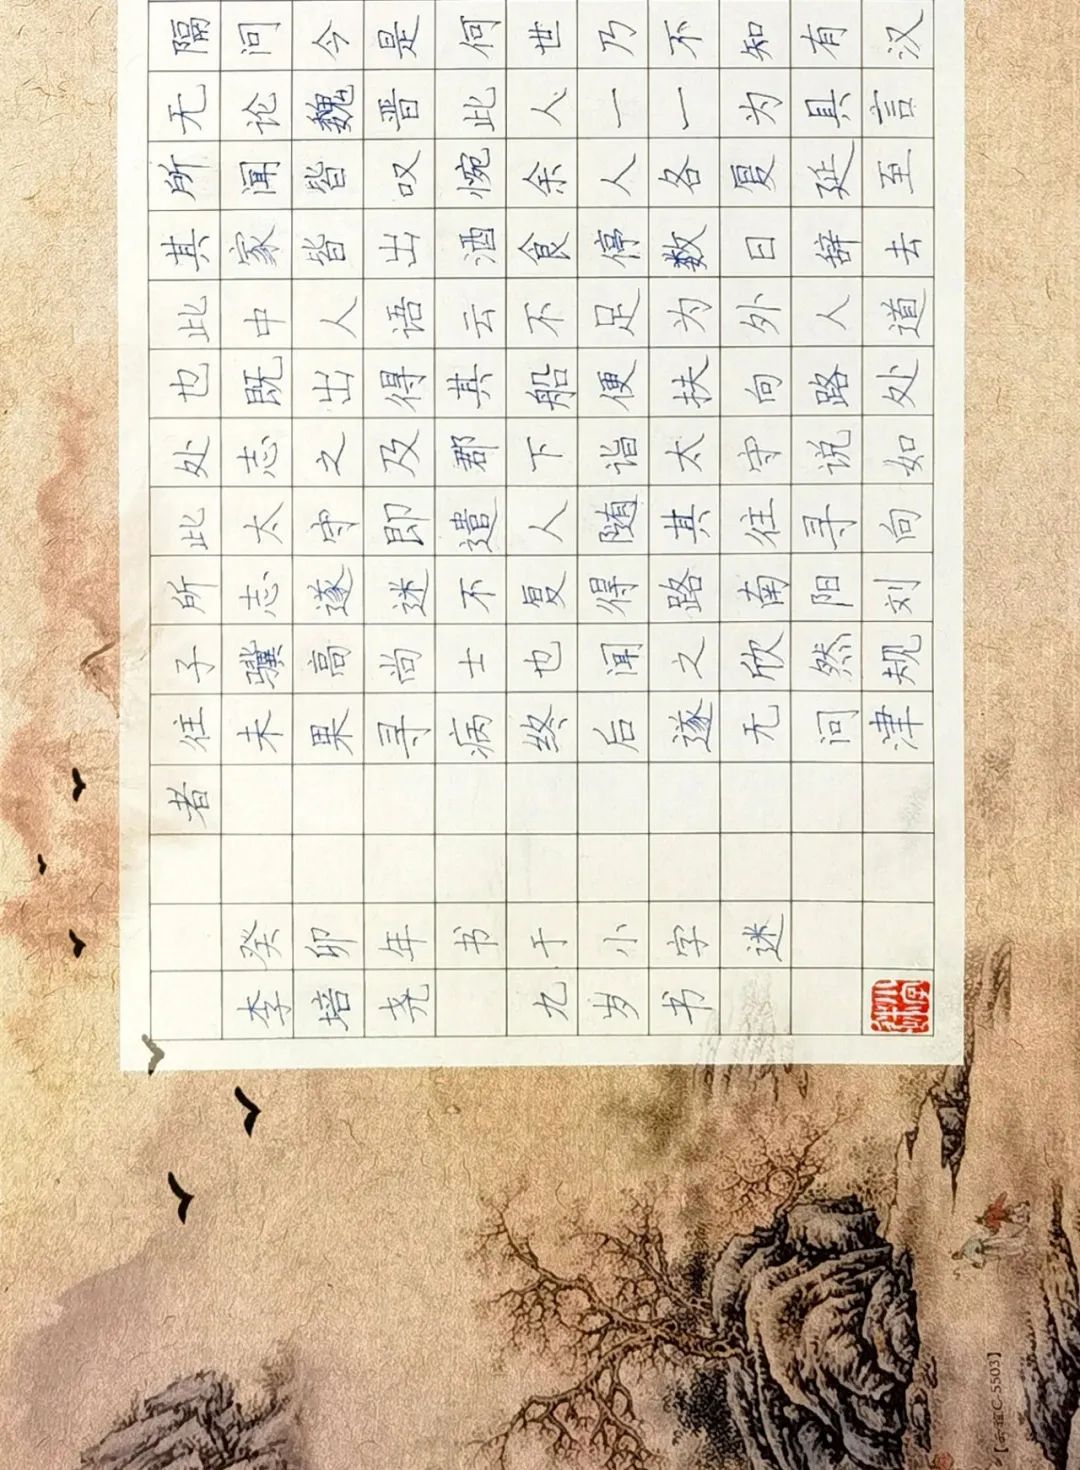 隔问今是何世乃不知有汉
无论魏晋此人一一为具言
所闻皆叹惋余人各复延至
其家皆出酒食停数日辞去
此中人语云不足为外人道
也既出得其船便扶向路处
处志之及郡下诣太守说如
此太守即遣人随其往寻向
所志遂迷不复得路南阳刘
子骥高尚士也闻之欣然规
往未果寻病终后遂无问津
者
癸卯年书于小字迷
李培尧 九岁书
C-5503